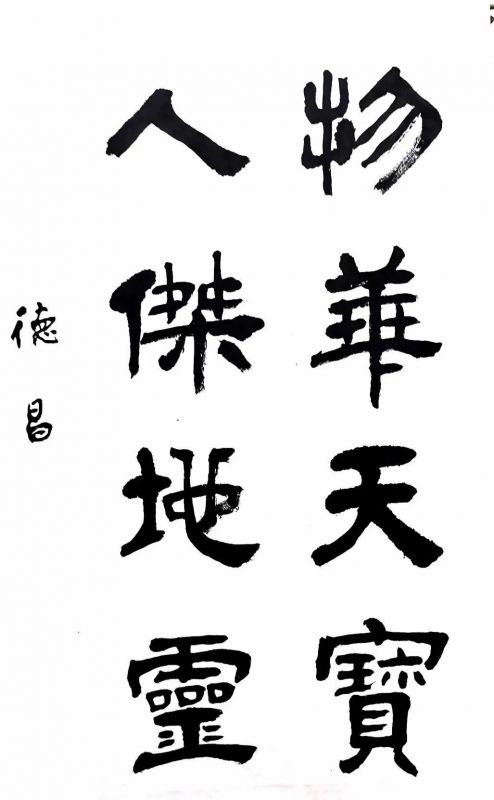 物華天寶
人傑地靈
德昌